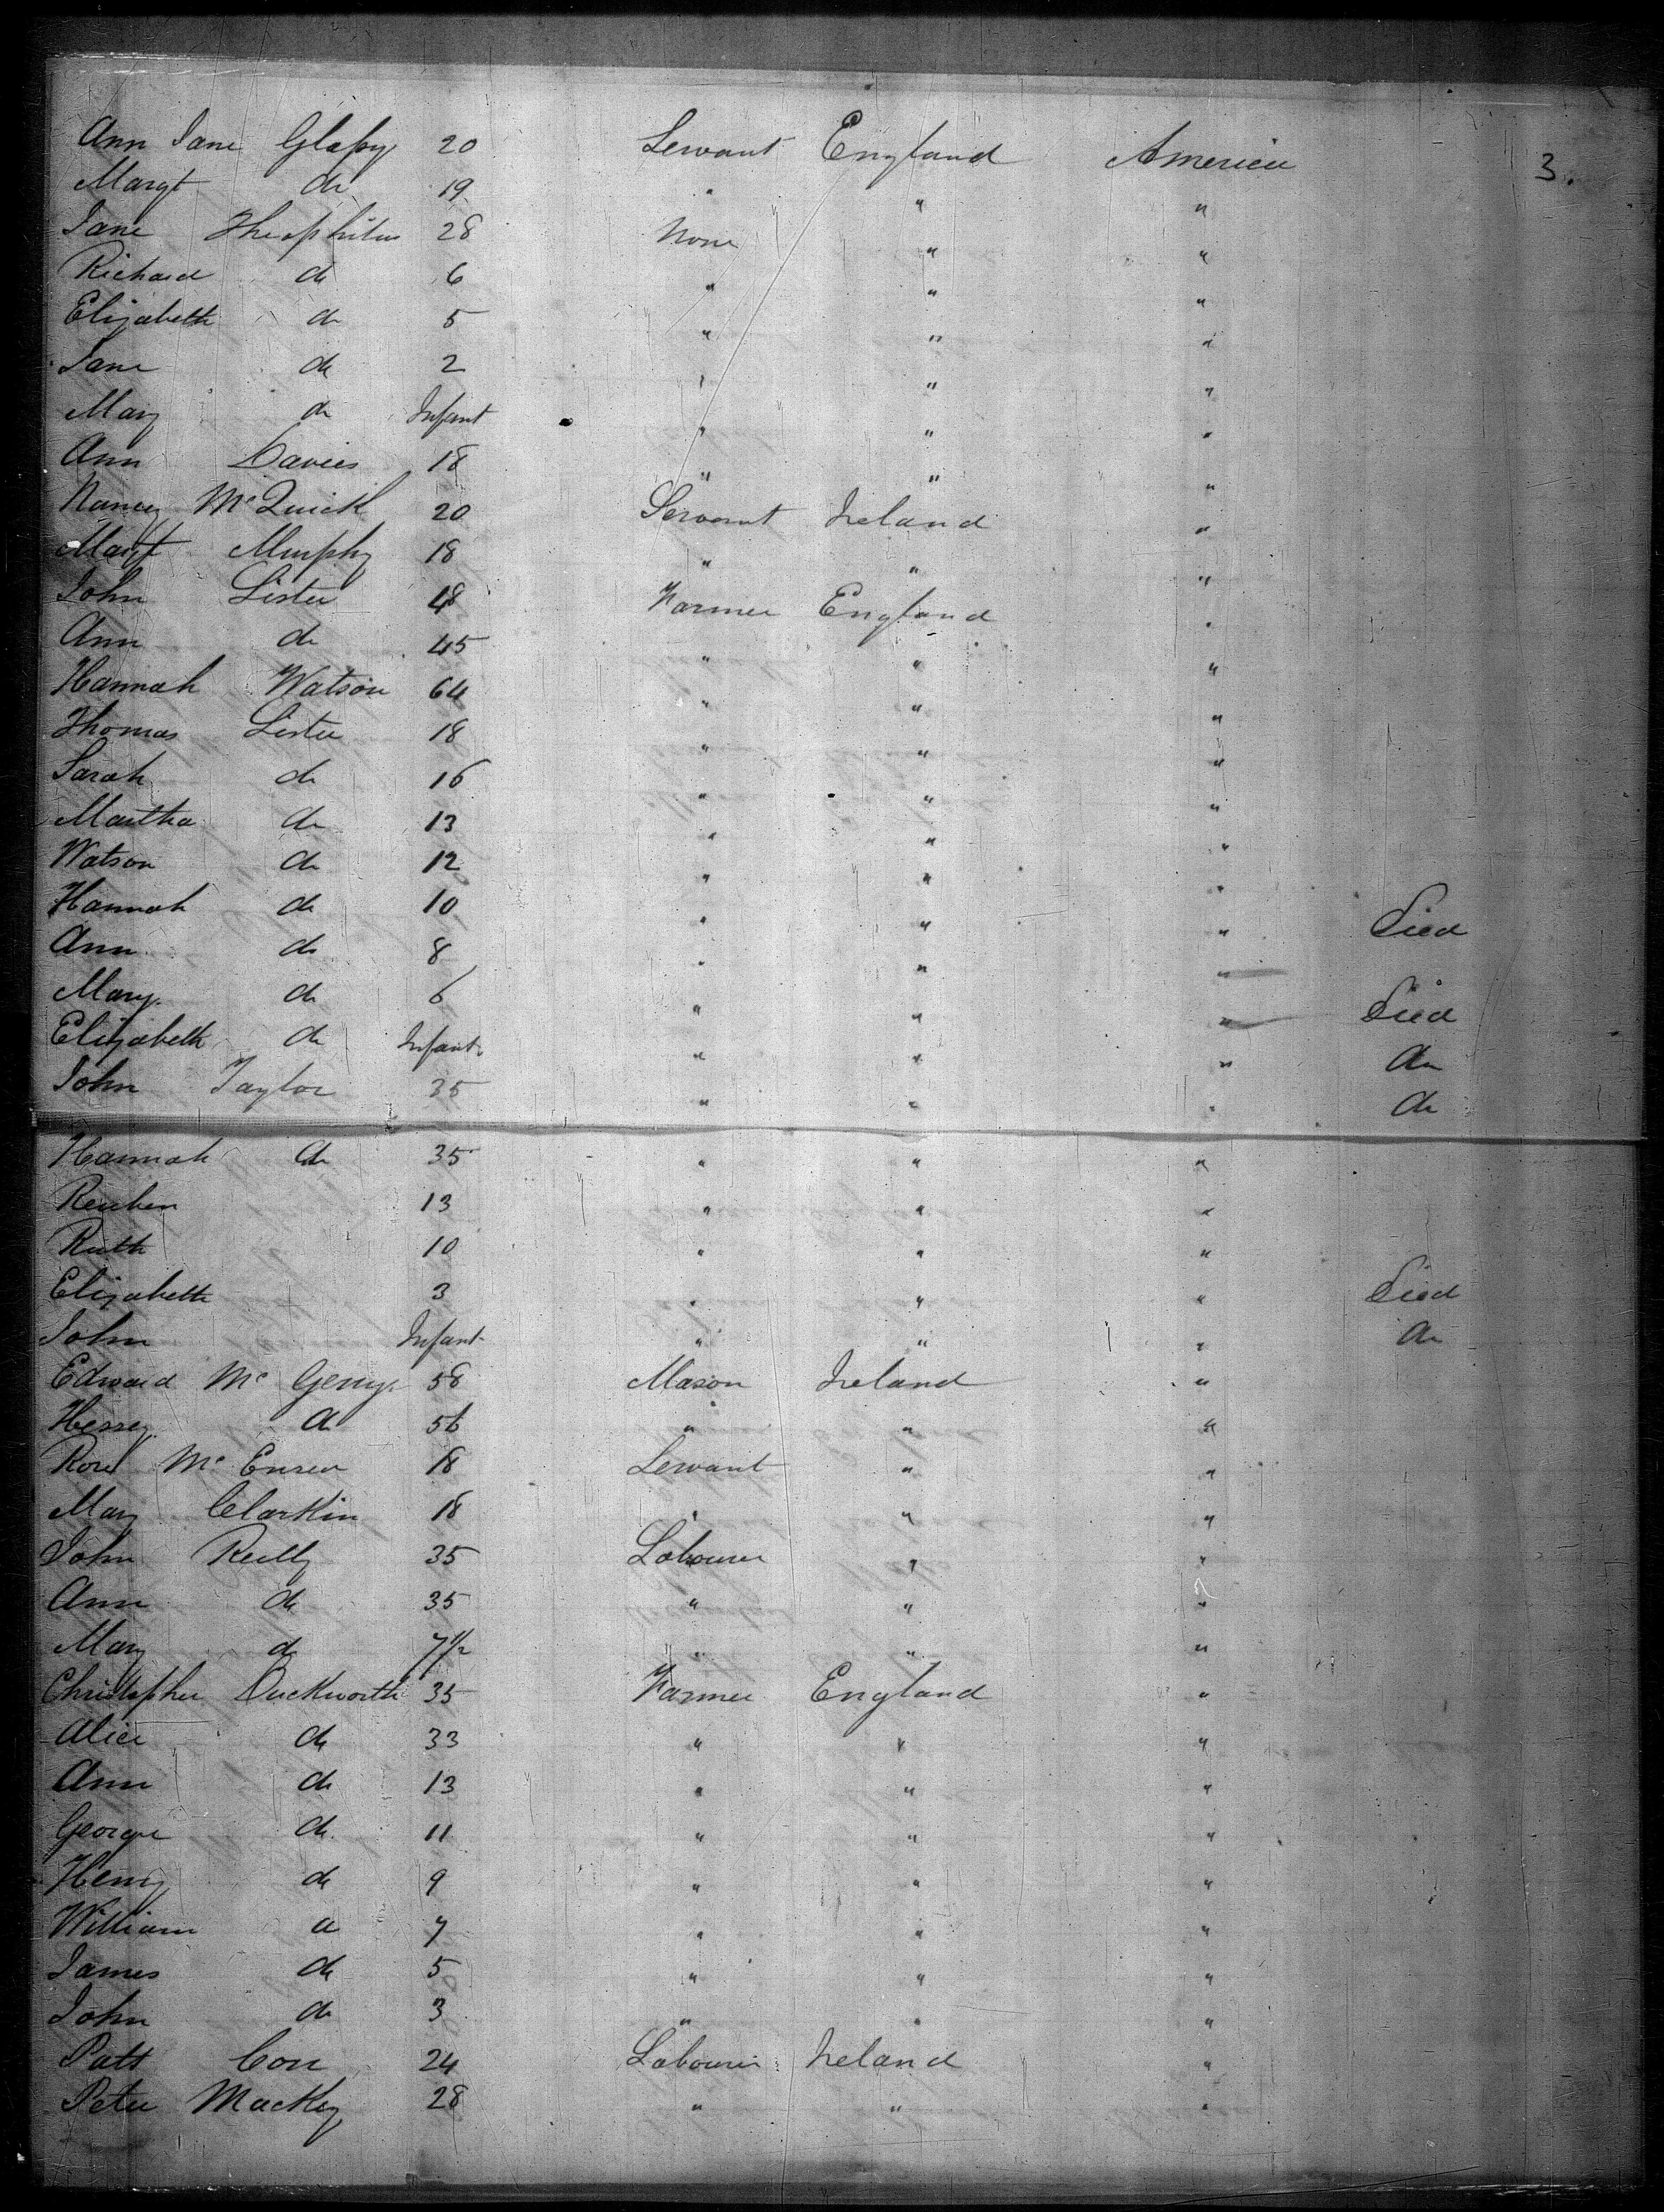 3.
Ann Jane Glasby 20 Servant England America
Margt do 19 " " "
Jane Theophilus 28 None " "
Richard do 6 " " "
Elizabeth do 5 " " "
Jane do 2 " " "
Mary do Infant " " "
Ann Davies 18 " " "
Nancy McQuick 20 Servant Ireland "
Margt Murphy 18 " " "
John Lister 48 Farmer England "
Ann do 45 " " "
Hannah Watson 64 " " "
Thomas Lister 18 " " "
Sarah do 16 " " "
Martha do 13 " " "
Watson do 12 " " "
Hannah do 10 " " " Died
Ann do 8 " " "
Mary do 6 " " " Died
Elizabeth do Infant " " " do
John Taylor 35 " " " do
Hannah do 35 " " "
Reuben 13 " " "
Ruth 10 " " "
Elizabeth 3 " " " Died
John Infant " " " do
Edward Mc 58 Mason Ireland "
do 56 " " "
Rose Mc 18 Servant " "
Mary Clarkin 18 " " "
John Reilly 35 Labourer " "
Ann do 35 " " "
Mary do 7 1/2 " " "
Christopher Duckworth 35 Farmer England "
Alice do 33 " " "
Ann do 13 " " "
George do 11 " " "
Henry do 9 " " "
William do 7 " " "
James do 5 " " "
John do 3 " " "
Patt Con 24 Labourer Ireland "
Peter Mackey 28 " " "